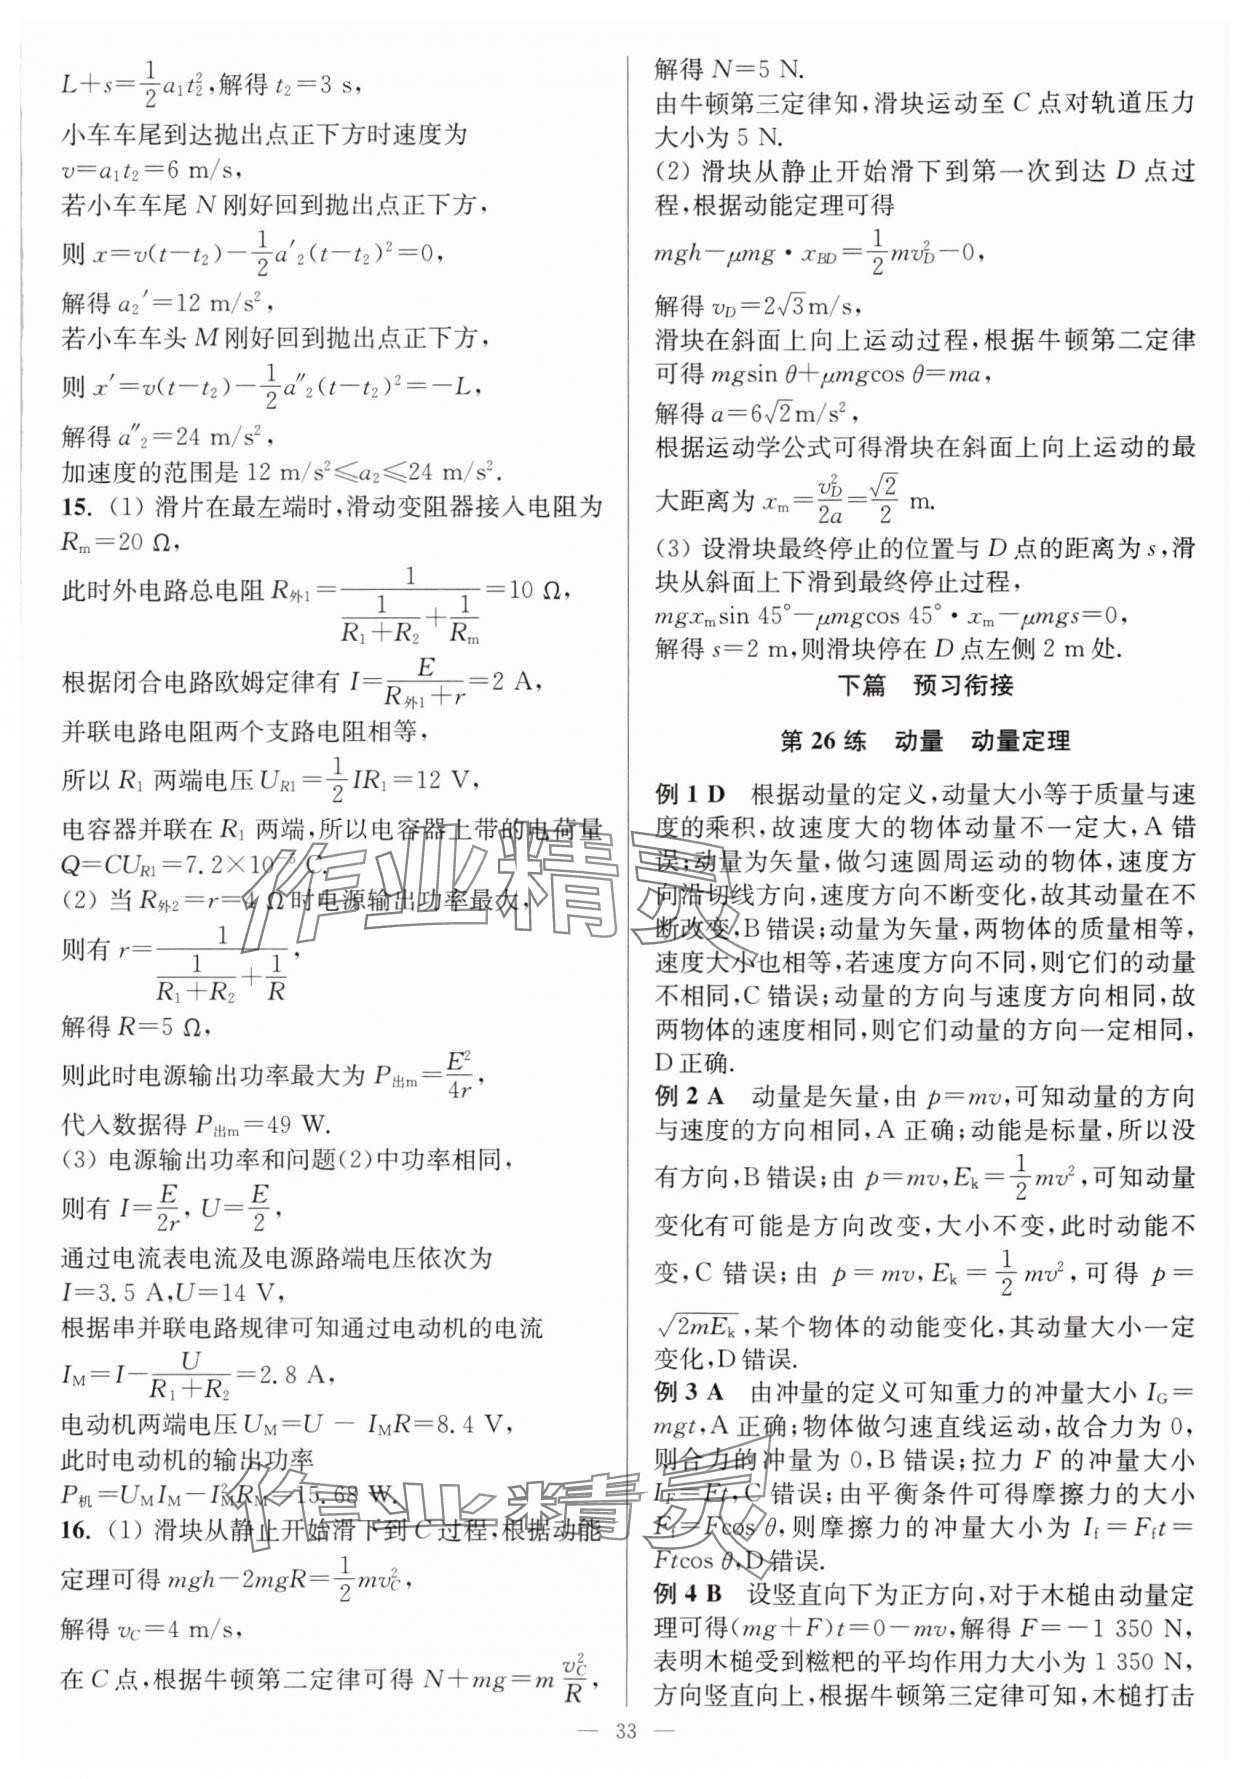 L+s=\frac{1}{2}a₁t₂²,解得 t₂=3 s,
小车车尾到达抛出点正下方时速度为
v=a₁t₂=6 m/s,
若小车车尾 N 刚好回到抛出点正下方,
则 x=v(t-t₂)-\frac{1}{2}a′₂(t-t₂)²=0,
解得 a₂′=12 m/s²,
若小车车头 M 刚好回到抛出点正下方,
则 x′=v(t-t₂)-\frac{1}{2}a″₂(t-t₂)²=-L,
解得 a″₂=24 m/s²,
加速度的范围是 12 m/s²⩽a₂⩽24 m/s².
15. (1) 滑片在最左端时,滑动变阻器接入电阻为
Rₘ=20 Ω,
此时外电路总电阻 R_{外1}=\frac{1}{\frac{1}{R₁+R₂}+\frac{1}{Rₘ}}=10 Ω,
根据闭合电路欧姆定律有 I=\frac{E}{R_{外1}+r}=2 A,
并联电路电阻两个支路电阻相等,
所以 R₁ 两端电压 U_{R1}=\frac{1}{2}IR₁=12 V,
电容器并联在 R₁ 两端,所以电容器上带的电荷量
Q=CU_{R1}=7.2×10⁻⁵ C.
(2) 当 R_{外2}=r=4 Ω时电源输出功率最大,
则有 r=\frac{1}{\frac{1}{R₁+R₂}+\frac{1}{R}},
解得 R=5 Ω,
则此时电源输出功率最大为 P_{出m}=\frac{E²}{4r},
代入数据得 P_{出m}=49 W.
(3) 电源输出功率和问题(2)中功率相同,
则有 I=\frac{E}{2r}, U=\frac{E}{2},
通过电流表电流及电源路端电压依次为
I=3.5 A,U=14 V,
根据串并联电路规律可知通过电动机的电流
I_M=I-\frac{U}{R₁+R₂}=2.8 A,
电动机两端电压 U_M=U - I_M R=8.4 V,
此时电动机的输出功率
P_机=U_M I_M-I_M²R_M=15.68 W.
16. (1) 滑块从静止开始滑下到 C 过程,根据动能
定理可得 mgh-2mgR=\frac{1}{2}mv_C²,
解得 v_C=4 m/s,
在 C 点,根据牛顿第二定律可得 N+mg=m\frac{v_C²}{R},
解得 N=5 N.
由牛顿第三定律知,滑块运动至 C 点对轨道压力
大小为 5 N.
(2) 滑块从静止开始滑下到第一次到达 D 点过
程,根据动能定理可得
mgh-μmg·x_{BD}=\frac{1}{2}mv_D²-0,
解得 v_D=2√3m/s,
滑块在斜面上向上运动过程,根据牛顿第二定律
可得 mgsin θ+μmgcos θ=ma,
解得 a=6√2m/s²,
根据运动学公式可得滑块在斜面上向上运动的最
大距离为 xₘ=\frac{v_D²}{2a}=\frac{√2}{2} m.
(3) 设滑块最终停止的位置与 D 点的距离为 s,滑
块从斜面上下滑到最终停止过程,
mgxₘsin 45°-μmgcos 45°·xₘ-μmgs=0,
解得 s=2 m,则滑块停在 D 点左侧 2 m 处.
下篇 预习衔接
第 26 练 动量 动量定理
例 1 D 根据动量的定义,动量大小等于质量与速
度的乘积,故速度大的物体动量不一定大,A 错
误;动量为矢量,做匀速圆周运动的物体,速度方
向沿切线方向,速度方向不断变化,故其动量在不
断改变,B 错误;动量为矢量,两物体的质量相等,
速度大小也相等,若速度方向不同,则它们的动量
不相同,C 错误;动量的方向与速度方向相同,故
两物体的速度相同,则它们动量的方向一定相同,
D 正确.
例 2 A 动量是矢量,由 p=mv,可知动量的方向
与速度的方向相同,A 正确;动能是标量,所以没
有方向,B 错误;由 p=mv,Eₖ=\frac{1}{2}mv²,可知动量
变化有可能是方向改变,大小不变,此时动能不
变,C 错误;由 p=mv,Eₖ=\frac{1}{2}mv²,可得 p=
√(2mEₖ),某个物体的动能变化,其动量大小一定
变化,D 错误.
例 3 A 由冲量的定义可知重力的冲量大小 I_G=
mgt,A 正确;物体做匀速直线运动,故合力为 0,
则合力的冲量为 0,B 错误;拉力 F 的冲量大小
I_F=Ft,C 错误;由平衡条件可得摩擦力的大小
F_f=Fcos θ,则摩擦力的冲量大小为 I_f=F_f t=
Ftcos θ,D 错误.
例 4 B 设竖直向下为正方向,对于木槌由动量定
理可得(mg+F)t=0-mv,解得 F=-1 350 N,
表明木槌受到糍粑的平均作用力大小为 1 350 N,
方向竖直向上,根据牛顿第三定律可知,木槌打击
— 33 —
作业精灵
作业精灵